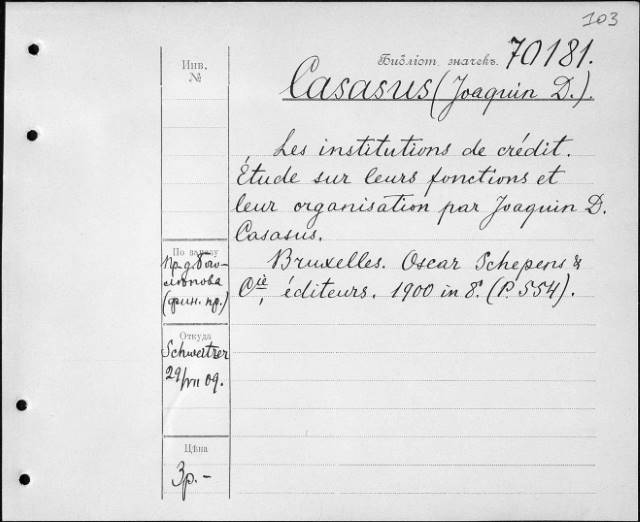 103
Библіот. значекъ. 70181.
Инв.
№
Casasus (Joaquin D.).
Les institutions de crédit.
Étude sur leurs fonctions et
leur organisation par Joaquin D.
Casasus.
Bruxelles. Oscar Schepens &
Cie, éditeurs. 1900 in 8°. (P. 554).
По заказу
пр. д. Бого-
лѣпова
(фин. пр.)
Откуда
Schweitzer
29/VII 09.
Цѣна
3р.-